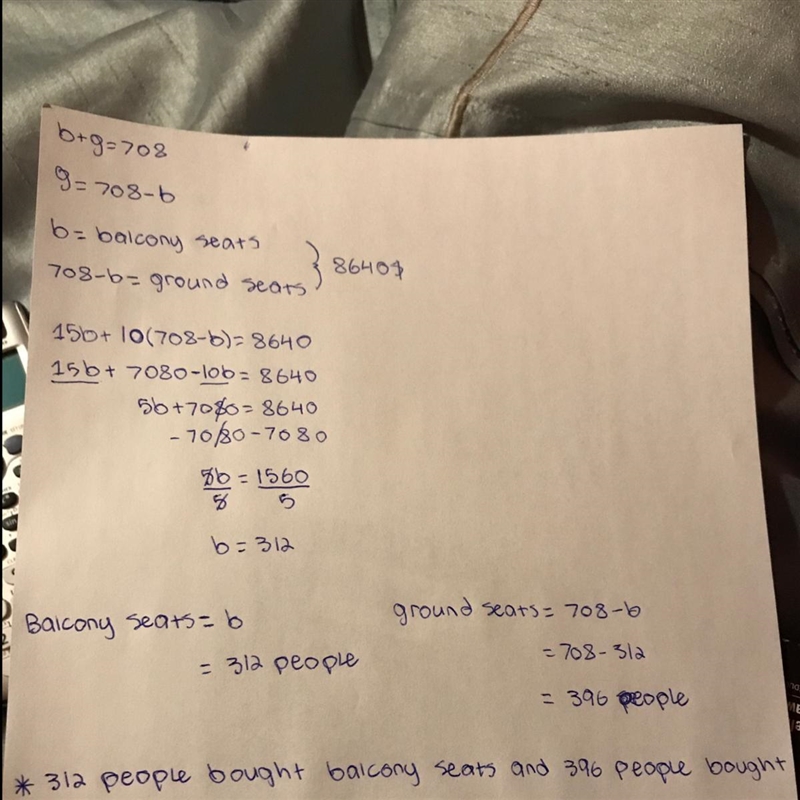 b+g=708
g=708-b
b= balcony seats
708-b= ground seats } 8640$
15b+10(708-b)=8640
15b+7080-10b=8640
5b+7080=8640
-7080-7080
5b = 1560
5 5
b=312
Balcony seats= b
= 312 people
ground seats= 708-b
= 708-312
= 396 people
* 312 people bought balcony seats and 396 people bought